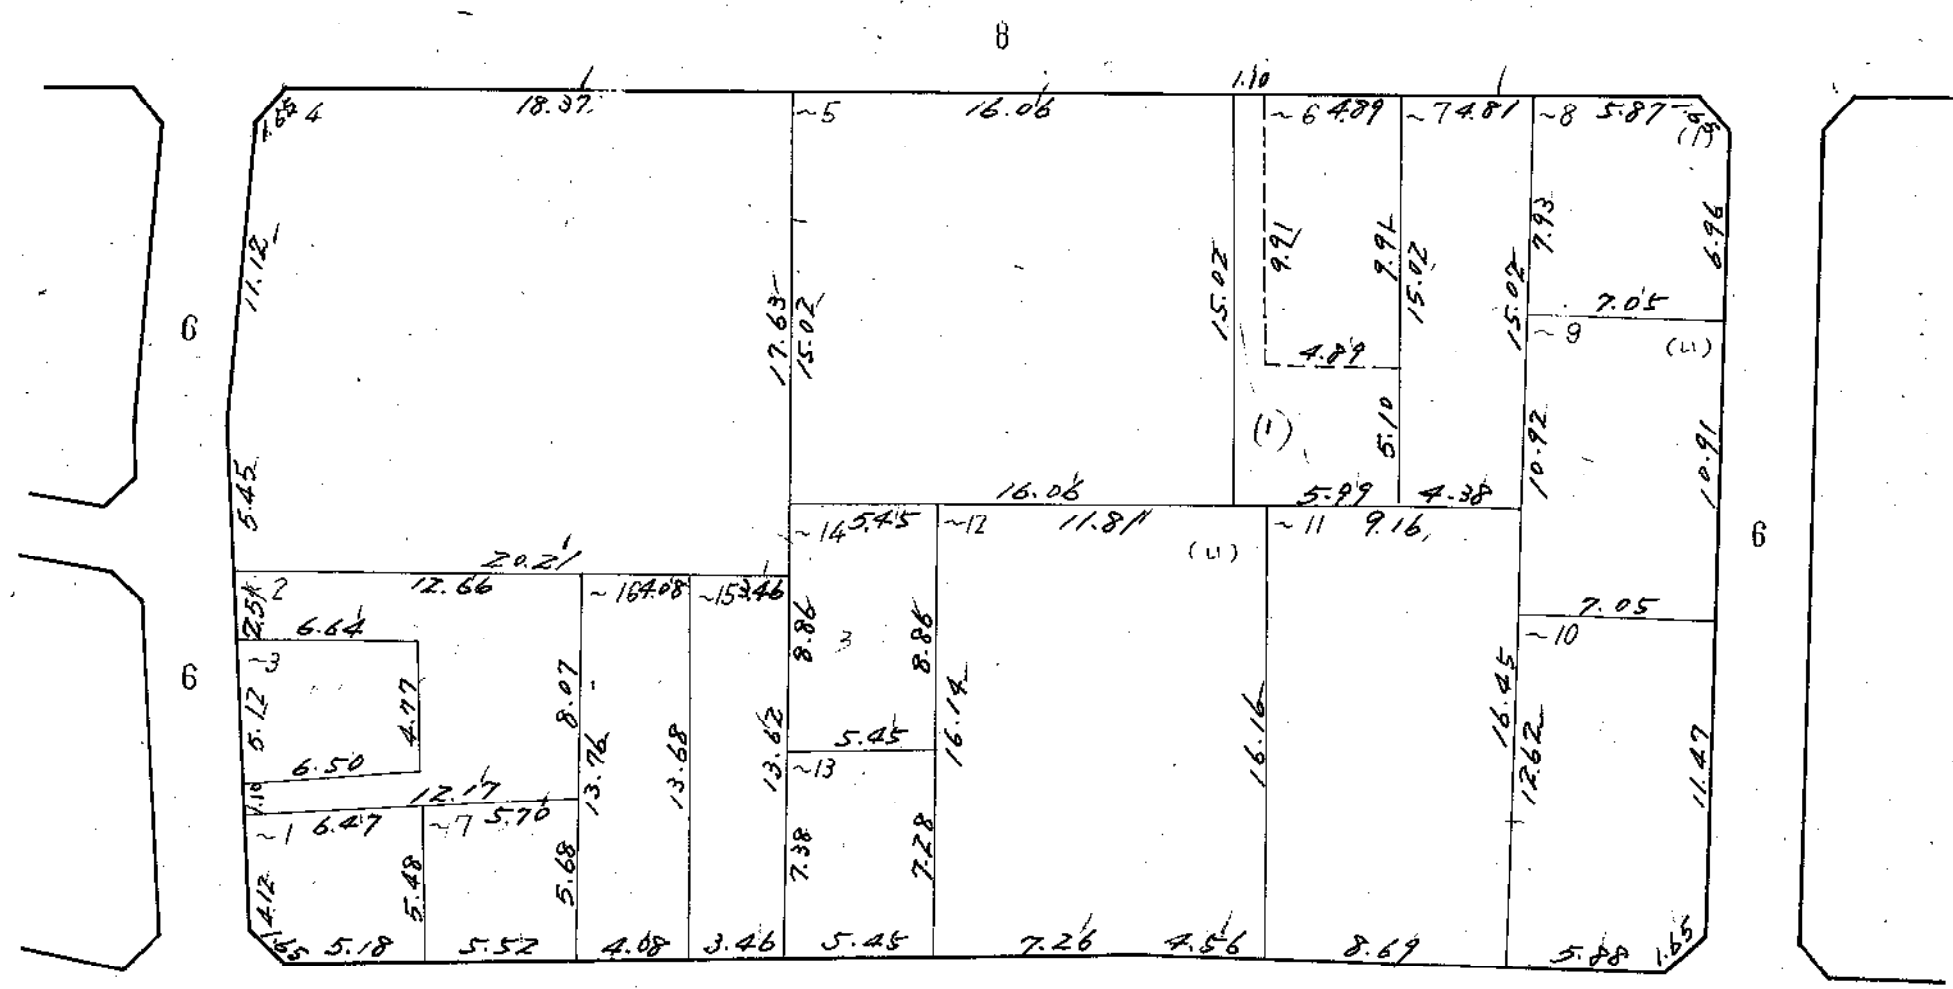 8
1.10
1.65 4 18.37 ~5 16.06 ~6 4.89 ~7 4.81 ~8 5.87 1.65
(1)
11.12 17.63 15.02 15.02 9.91 9.91 15.02 15.02 7.93 6.96
6
7.05
4.89 ~9 (L1)
5.45 (1) 5.10 10.92 10.91
16.06 5.99 4.38
~14 5.45 ~12 11.81 (L1) ~11 9.16
6
20.21
2 12.66 ~16 4.08 ~15 3.46
2.51 6.64 8.86 3 8.86 7.05
~10
~3
6
5.12 4.77 8.07 13.76 13.68 13.62 16.14 16.16 16.45 12.62 11.47
5.45
6.50 ~13
1.10 12.17
~1 6.47 ~7 5.70
4.12 5.48 5.68 7.38 7.28
1.65 5.18 5.52 4.08 3.46 5.45 7.26 4.56 8.69 5.88 1.65